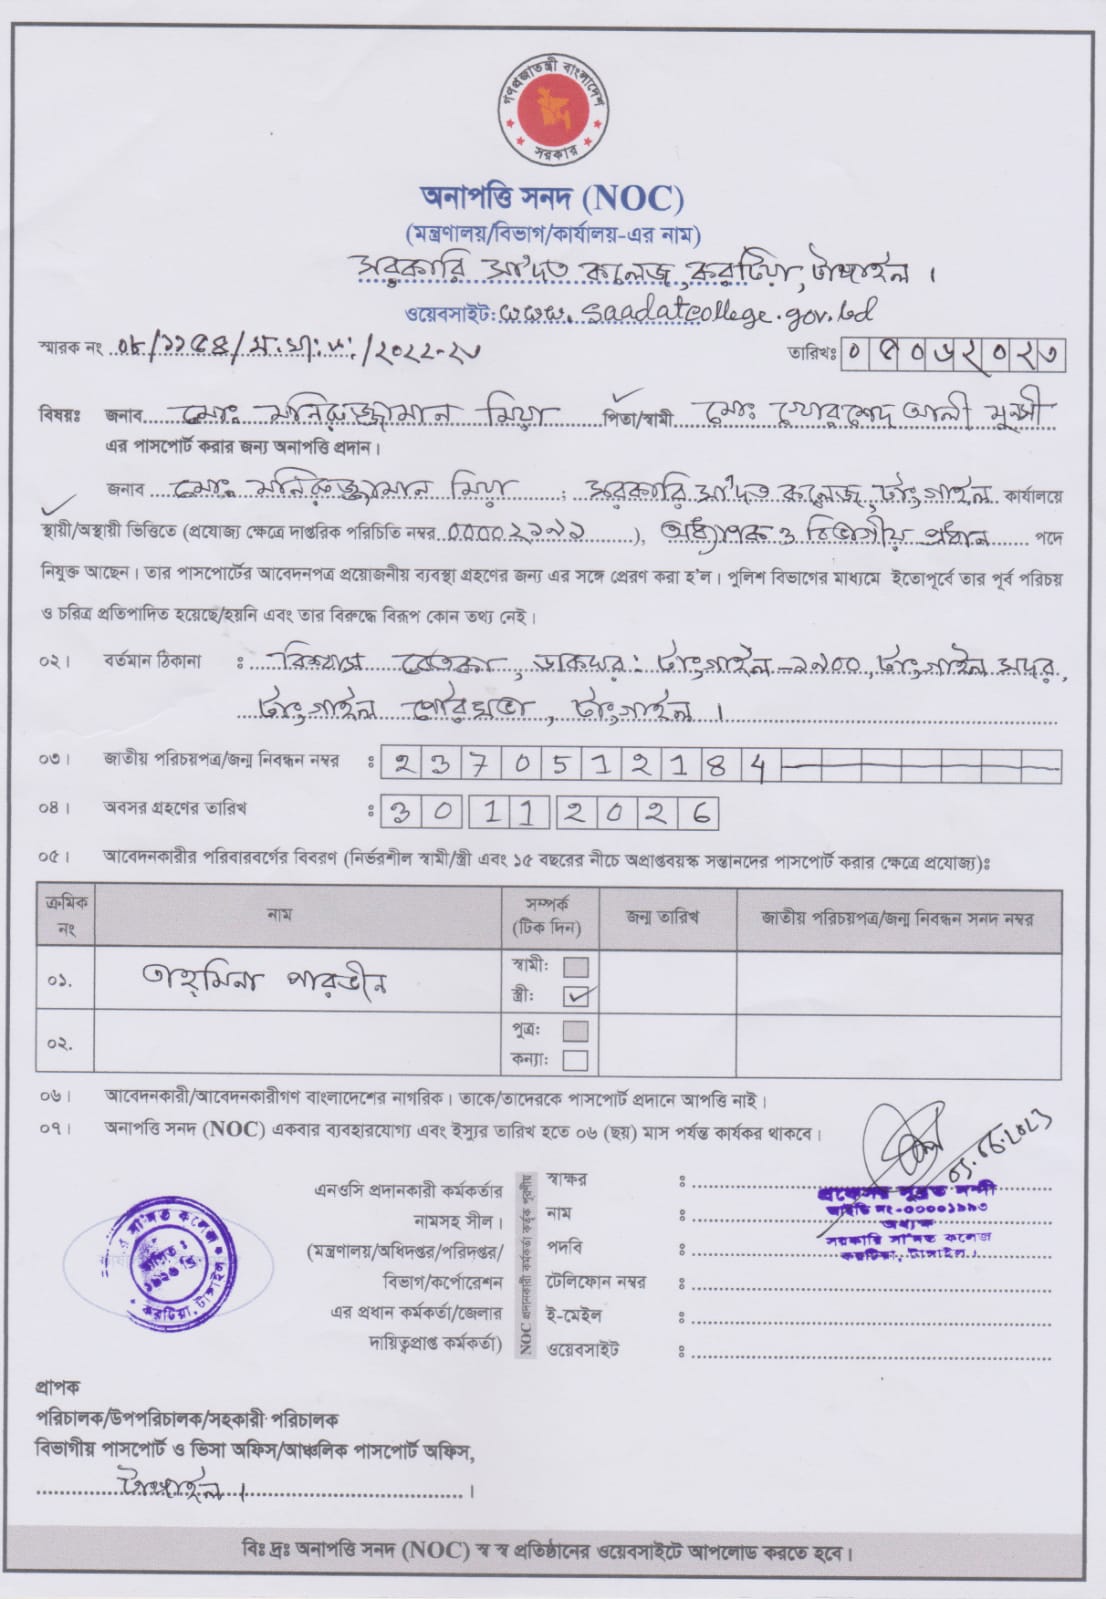 গণপ্রজাতন্ত্রী বাংলাদেশ
সরকার
অনাপত্তি সনদ (NOC)
(মন্ত্রণালয়/বিভাগ/কার্যালয়-এর নাম)
সরকারি সা'দত কলেজ, করটিয়া, টাঙ্গাইল।
ওয়েবসাইট: www.saadatcollege.gov.bd
স্মারক নং ০৮/১১৫৪/স.সা.ক./২০২২-২৩
তারিখঃ ০৫০৬২০২৩
বিষয়ঃ জনাব মোঃ মনিরুজ্জামান মিয়া পিতা/স্বামী মোঃ খোরশেদ আলী মুন্সী
এর পাসপোর্ট করার জন্য অনাপত্তি প্রদান।
জনাব মোঃ মনিরুজ্জামান মিয়া, সরকারি সা'দত কলেজ, টাংগাইল কার্যালয়ে
স্থায়ী/অস্থায়ী ভিত্তিতে (প্রযোজ্য ক্ষেত্রে দাপ্তরিক পরিচিতি নম্বর 00002১৭২), অধ্যাপক ও বিভাগীয় প্রধান পদে
নিযুক্ত আছেন। তার পাসপোর্টের আবেদনপত্র প্রয়োজনীয় ব্যবস্থা গ্রহণের জন্য এর সঙ্গে প্রেরণ করা হ'ল। পুলিশ বিভাগের মাধ্যমে ইতোপূর্বে তার পূর্ব পরিচয়
ও চরিত্র প্রতিপাদিত হয়েছে/হয়নি এবং তার বিরুদ্ধে বিরূপ কোন তথ্য নেই।
০২। বর্তমান ঠিকানা : বিশ্বাস বেতকা, ডাকঘর: টাংগাইল-১৯০০, টাংগাইল সদর,
টাংগাইল পৌরসভা, টাংগাইল।
০৩। জাতীয় পরিচয়পত্র/জন্ম নিবন্ধন নম্বর : 2370512184
০৪। অবসর গ্রহণের তারিখ : 30 11 2026
০৫। আবেদনকারীর পরিবারবর্গের বিবরণ (নির্ভরশীল স্বামী/স্ত্রী এবং ১৫ বছরের নীচে অপ্রাপ্তবয়স্ক সন্তানদের পাসপোর্ট করার ক্ষেত্রে প্রযোজ্য)ঃ
ক্রমিক নং নাম সম্পর্ক (টিক দিন) জন্ম তারিখ জাতীয় পরিচয়পত্র/জন্ম নিবন্ধন সনদ নম্বর
০১. তাহমিনা পারভীন স্বামী:
স্ত্রী: ✓
০২. পুত্র:
কন্যা:
০৬। আবেদনকারী/আবেদনকারীগণ বাংলাদেশের নাগরিক। তাকে/তাদেরকে পাসপোর্ট প্রদানে আপত্তি নাই।
০৭। অনাপত্তি সনদ (NOC) একবার ব্যবহারযোগ্য এবং ইস্যুর তারিখ হতে ০৬ (ছয়) মাস পর্যন্ত কার্যকর থাকবে।
০৫.০৬.২০২৩
এনওসি প্রদানকারী কর্মকর্তার
নামসহ সীল।
(মন্ত্রণালয়/অধিদপ্তর/পরিদপ্তর/
বিভাগ/কর্পোরেশন
এর প্রধান কর্মকর্তা/জেলার
দায়িত্বপ্রাপ্ত কর্মকর্তা)
NOC প্রদানকারী কর্মকর্তা কর্তৃক পূরণীয়
স্বাক্ষর :
নাম :
পদবি :
টেলিফোন নম্বর :
ই-মেইল :
ওয়েবসাইট :
প্রফেসর সুব্রত নন্দী
আইডি নং-০০০০১৯৯৩
অধ্যক্ষ
সরকারি সা'দত কলেজ
করটিয়া, টাঙ্গাইল।
সা'দত কলেজ
স্থাপিত :
১৯২৬ খ্রি
করটিয়া, টাঙ্গাইল
প্রাপক
পরিচালক/উপপরিচালক/সহকারী পরিচালক
বিভাগীয় পাসপোর্ট ও ভিসা অফিস/আঞ্চলিক পাসপোর্ট অফিস,
টাঙ্গাইল।
বিঃ দ্রঃ অনাপত্তি সনদ (NOC) স্ব স্ব প্রতিষ্ঠানের ওয়েবসাইটে আপলোড করতে হবে।